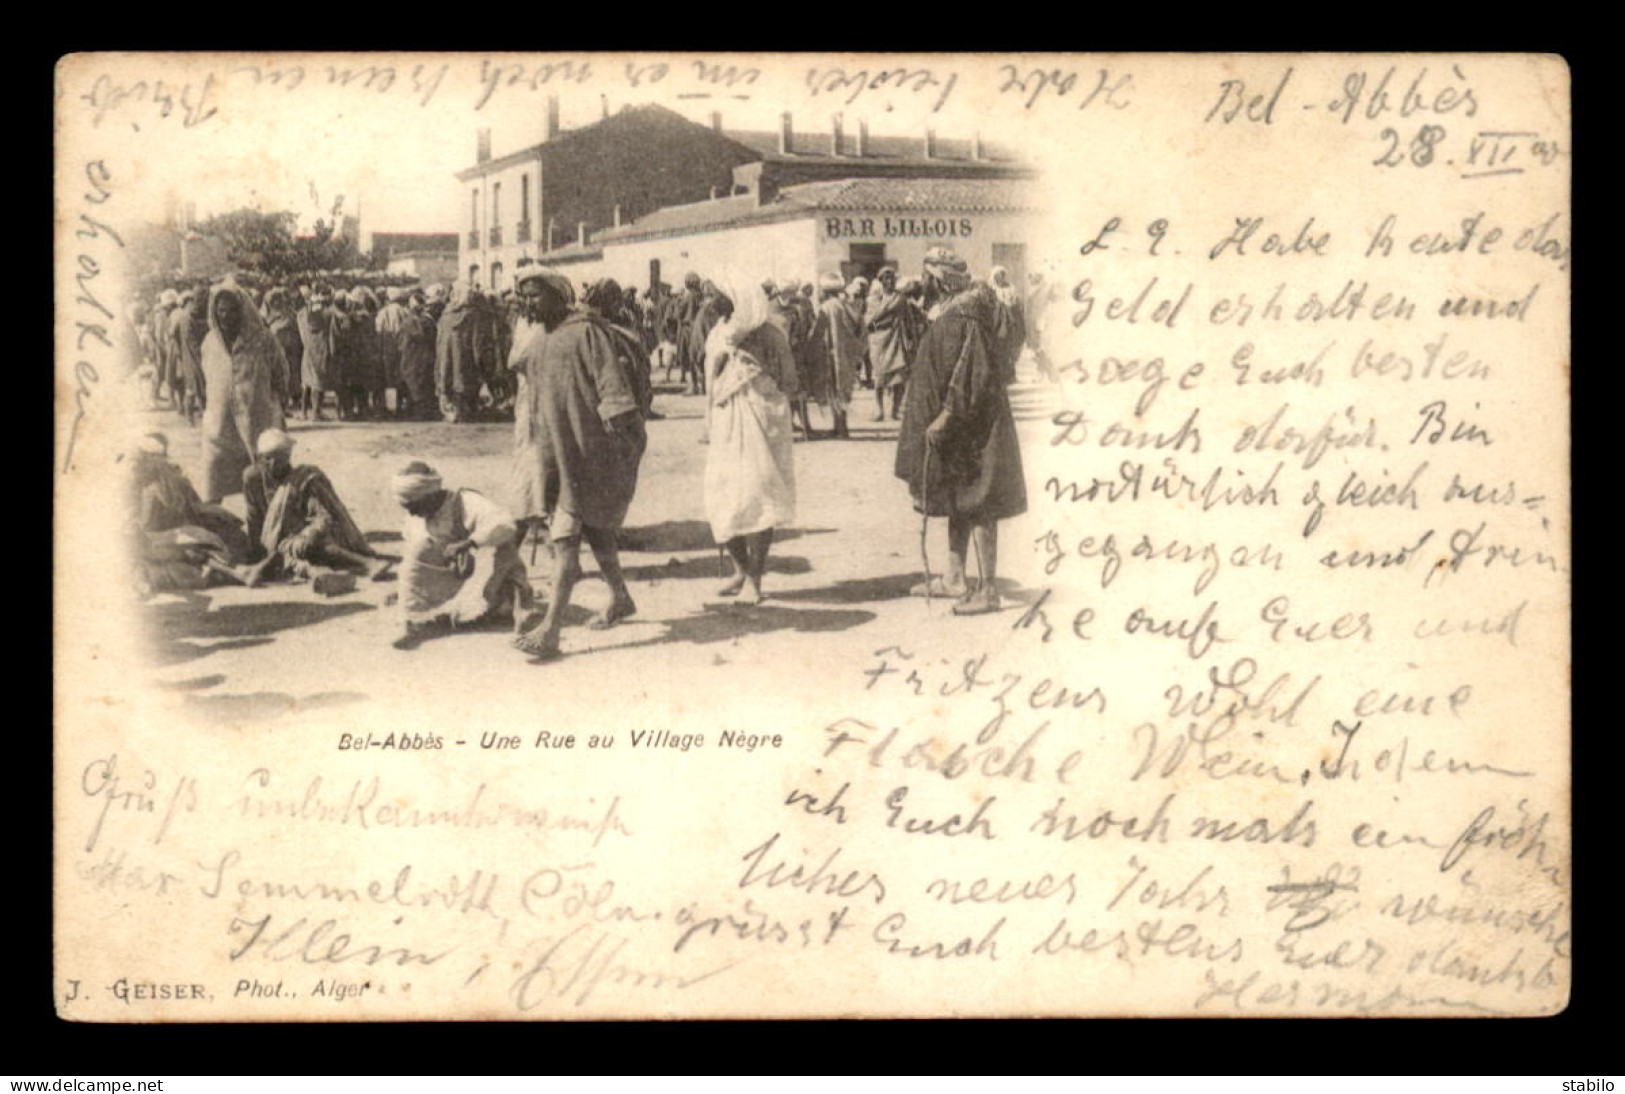 Bel-Abbès
28. XII 00
L. E. Habe heute das
Geld erhalten und
sage Euch besten
Dank dafür. Bin
natürlich gleich aus=
gegangen und trin
ke aufs Euer und
Fritzens Wohl eine
Flasche Wein. Indem
ich Euch nochmals ein fröh
liches neues Jahr wünsche
grüsst Euch bestens Euer dankb
Hermann
Habe leider im er noch keinen
Brief
erhalten
BAR LILLOIS
Bel-Abbès - Une Rue au Village Nègre
Gruß unbekannterweise
Max Semmelroth, Cöln.
Klein, Essen
J. GEISER, Phot., Alger
www.delcampe.net
stabilo